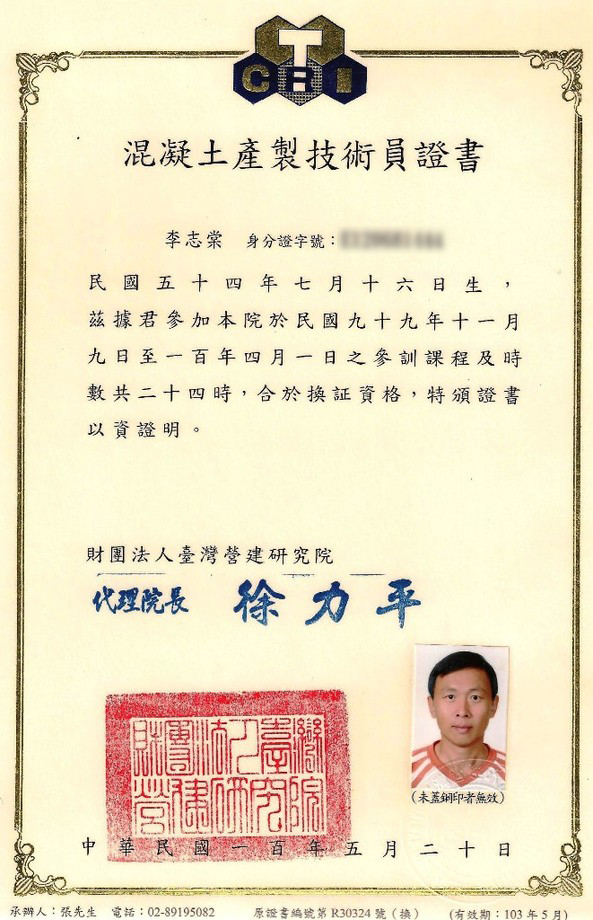 T
CRI
混凝土產製技術員證書
李志棠 身分證字號：
民國五十四年七月十六日生，
茲據君參加本院於民國九十九年十一月
九日至一百年四月一日之參訓課程及時
數共二十四時，合於換証資格，特頒證書
以資證明。
財團法人臺灣營建研究院
代理院長 徐力平
財團法人臺灣
營建研究院
(未蓋鋼印者無效)
中華民國一百年五月二十日
承辦人：張先生 電話：02-89195082 原證書編號第 R30324 號（換） (有效期：103 年 5 月)